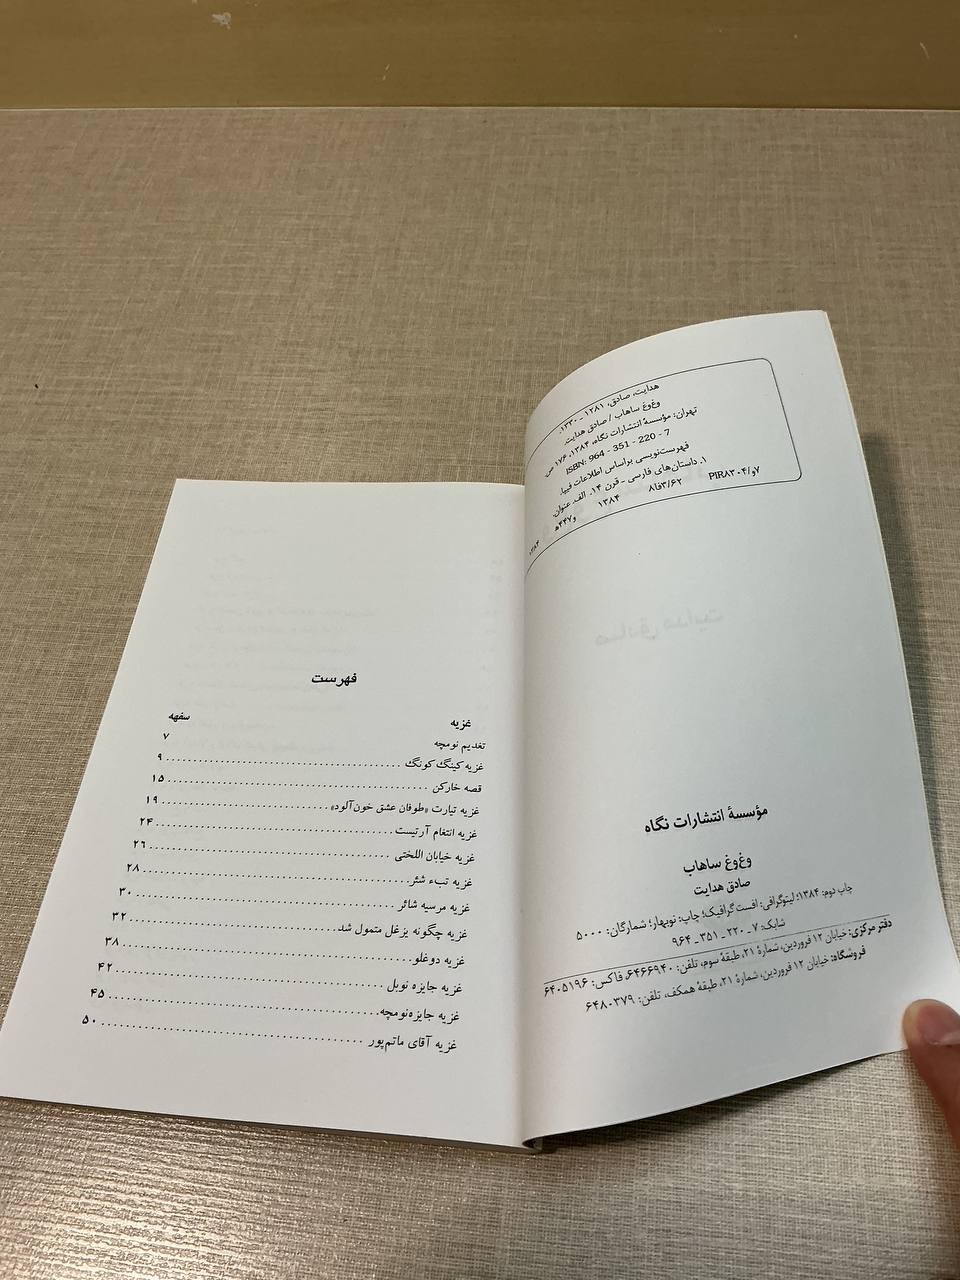 هدایت، صادق، ۱۲۸۱ ـ ۱۳۳۰.
وغ‌وغ ساهاب / صادق هدایت.
تهران: مؤسسهٔ انتشارات نگاه، ۱۳۸۴. ۱۷۶ ص.
ISBN: 964 - 351 - 220 - 7
فهرست‌نویسی براساس اطلاعات فیپا.
۱. داستان‌های فارسی ـ قرن ۱۴. الف. عنوان.
۷و/PIR۸۳۰۴ ۸فا۳/۶۲
۱۳۸۴ و۴۴۷ه ۱۳۸۴
مؤسسهٔ انتشارات نگاه
وغ‌وغ ساهاب
صادق هدایت
چاپ دوم: ۱۳۸۴؛ لیتوگرافی: افست گرافیک؛ چاپ: نوبهار؛ شمارگان: ۵۰۰۰
شابک: ۷ ـ ۲۲۰ ـ ۳۵۱ ـ ۹۶۴
دفتر مرکزی: خیابان ۱۲ فروردین، شمارهٔ ۲۱، طبقهٔ سوم، تلفن: ۶۴۶۶۹۴۰، فاکس: ۶۴۰۵۱۹۶
فروشگاه: خیابان ۱۲ فروردین، شمارهٔ ۲۱، طبقهٔ همکف، تلفن: ۶۴۸۰۳۷۹
فهرست
غزیه سفهه
تغدیم نومچه ۷
غزیه کینگ کونگ ۹
قصه خارکن ۱۵
غزیه تیارت «طوفان عشق خون‌آلود» ۱۹
غزیه انتغام آرتیست ۲۴
غزیه خیابان اللختی ۲۶
غزیه تبء شئر ۲۸
غزیه مرسیه شائر ۳۰
غزیه چگونه یزغل متمول شد ۳۲
غزیه دوغلو ۳۸
غزیه جایزه نوبل ۴۲
غزیه جایزه‌نومچه ۴۵
غزیه آقای ماتم‌پور ۵۰